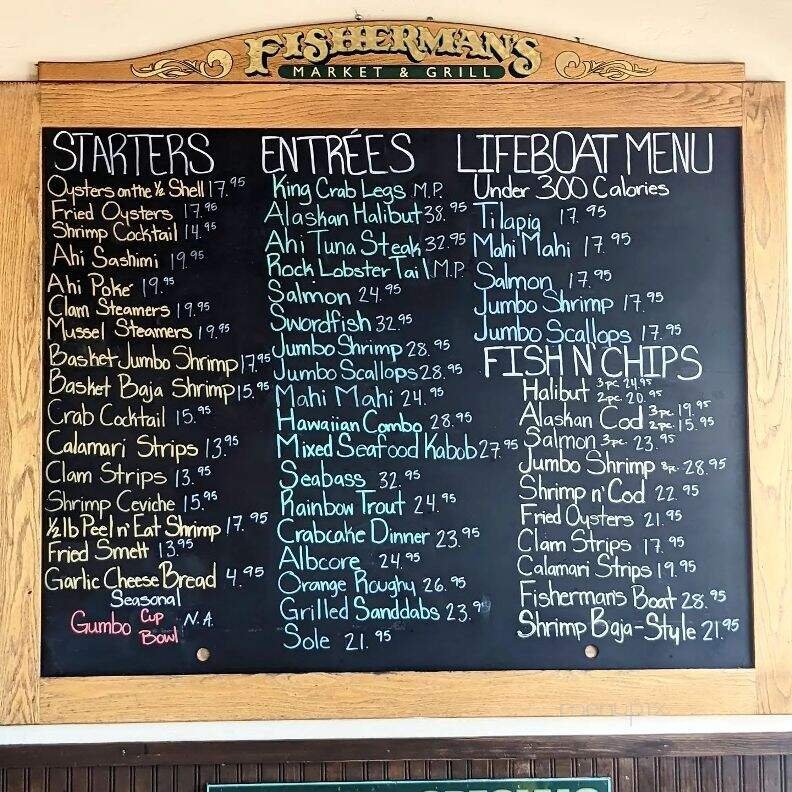 FISHERMAN'S
MARKET & GRILL
STARTERS
Oysters on the ½ Shell 17.95
Fried Oysters 17.95
Shrimp Cocktail 14.95
Ahi Sashimi 19.95
Ahi Poke 19.95
Clam Steamers 19.95
Mussel Steamers 19.95
Basket Jumbo Shrimp 17.95
Basket Baja Shrimp 15.95
Crab Cocktail 15.95
Calamari Strips 13.95
Clam Strips 13.95
Shrimp Ceviche 15.95
½ lb Peel n' Eat Shrimp 17.95
Fried Smelt 13.95
Garlic Cheese Bread 4.95
Seasonal
Gumbo Cup N.A.
Bowl
ENTRÉES
King Crab Legs M.P.
Alaskan Halibut 38.95
Ahi Tuna Steak 32.95
Rock Lobster Tail M.P.
Salmon 24.95
Swordfish 32.95
Jumbo Shrimp 28.95
Jumbo Scallops 28.95
Mahi Mahi 24.95
Hawaiian Combo 28.95
Mixed Seafood Kabob 27.95
Seabass 32.95
Rainbow Trout 24.95
Crabcake Dinner 23.95
Albcore 24.95
Orange Roughy 26.95
Grilled Sanddabs 23.95
Sole 21.95
LIFEBOAT MENU
Under 300 Calories
Tilapia 17.95
Mahi Mahi 17.95
Salmon 17.95
Jumbo Shrimp 17.95
Jumbo Scallops 17.95
FISH N' CHIPS
Halibut 3pc. 24.95
2pc. 20.95
Alaskan Cod 3pc. 19.95
2pc. 15.95
Salmon 3pc. 23.95
Jumbo Shrimp 8pc. 28.95
Shrimp n' Cod 22.95
Fried Oysters 21.95
Clam Strips 17.95
Calamari Strips 19.95
Fishermans Boat 28.95
Shrimp Baja-Style 21.95
menupix